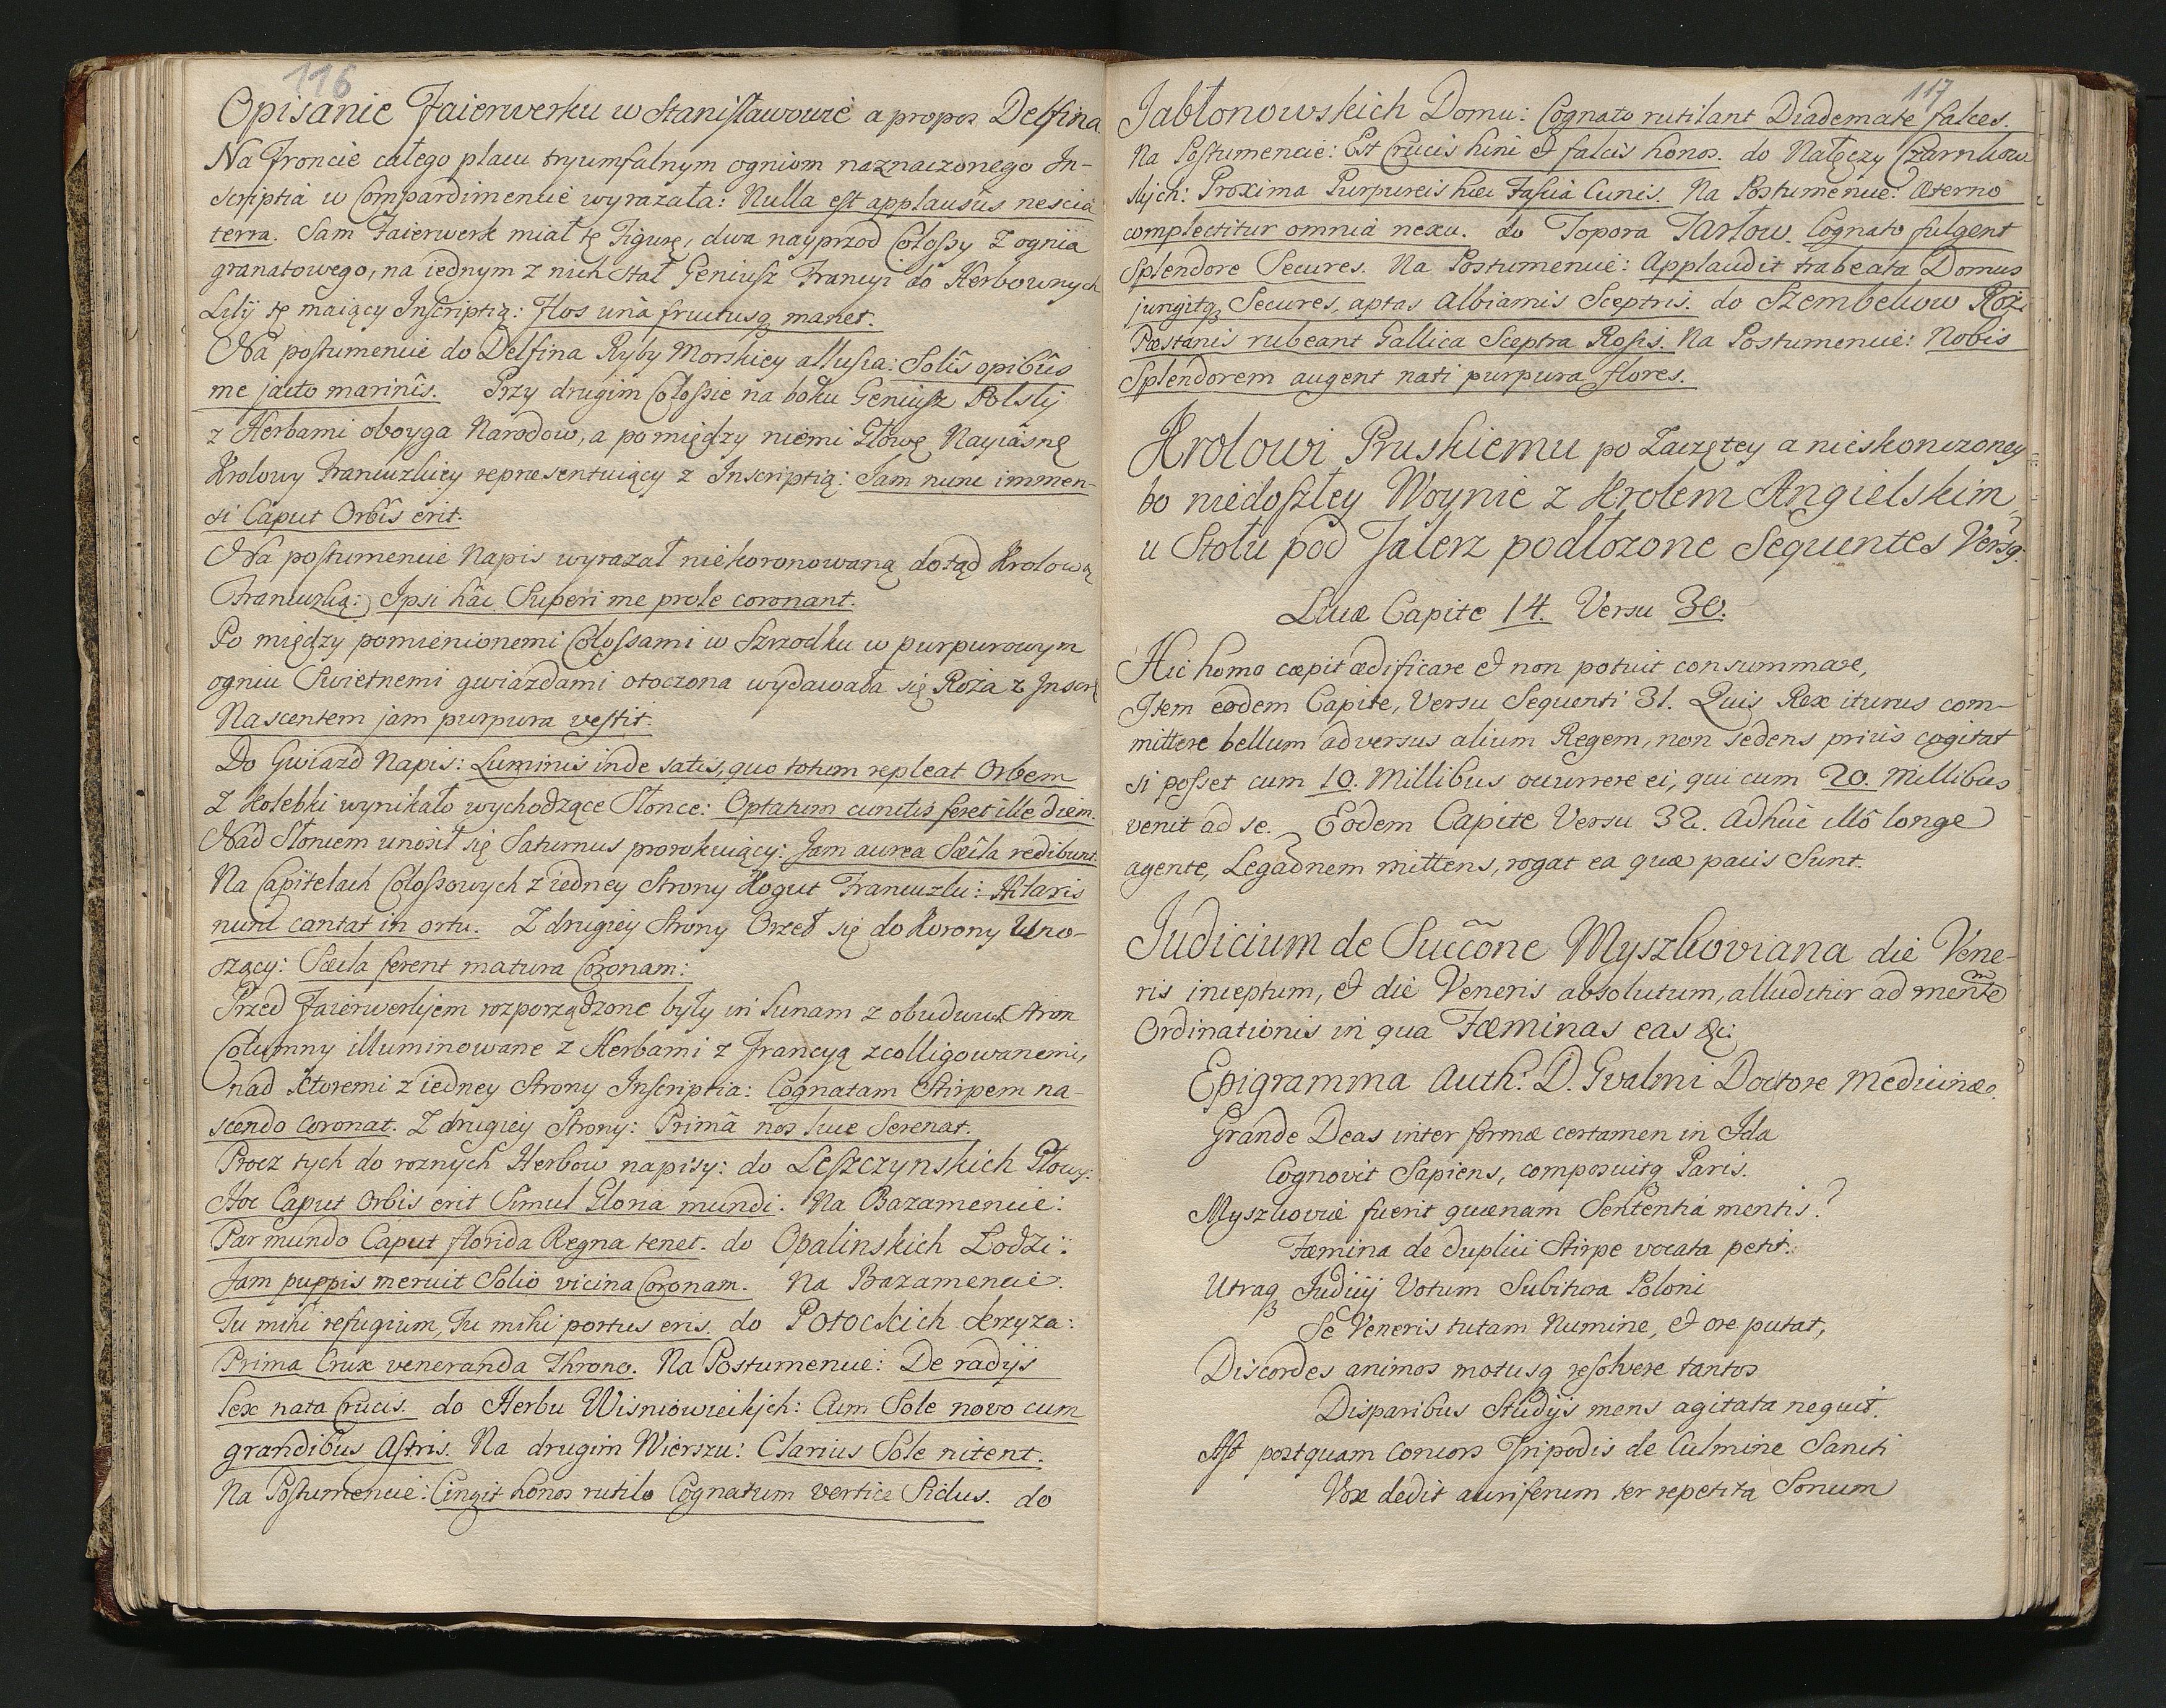 116
Opisanie Faierwerku w Stanisławowie a propos Delfina
Na Froncie całego placu tryumfalnym ogniom naznaczonego In-
scriptia w Compardimencie wyrazała: Nulla est applausus nescia
terra. Sam Faierwerk miał tę Figurę, dwa nayprzod Colossy z ognia
granatowego, na iednym z nich stał Geniusz Francyi do Herbownych
Lilij tę maiący Inscriptią: Flos unâ fructusq manet.
Na postumencie do Delfina Ryby Morskiey allusia: Solîs opibûs
me jacto marinîs. Przy drugim Colossie na boku Geniusz Polsky
z Herbami oboyga Narodow, a pomiędzy niemi Głowę Nayiasnę
Krolowy Francuzkiey repraesentuiący z Inscriptią: Jam nunc immen-
si Caput Orbîs erit.
Na postumencie Napis wyrazał niekoronowaną dotąd Krolową
Francuzką: Ipsi hâc Superi me prole coronant.
Po między pomienionemi Colossami w Szrzodku w purpurowym
ogniu Swietnemi gwiazdami otoczona wydawała się Roża z Inscri
Nascentem jam purpura vestit.
Do Gwiazd Napis: Luminis inde satis, quo totum repleat Orbem
z Kolebki wynikało wychodzące Słonce: Optatum cunctis feret ille diem.
Nad Słoncem unosił się Saturnus prorokuiący: Jam aurea Sæcla redibunt.
Na Capitelach Colossowych z iedney Strony Kogut Francuzki: Hilaris
nunc cantat in ortu. Z drugiey Strony Orzeł się do Korony Uno-
szący: Sæcla ferent matura Coronam:
Przed Faierwerkjem rozporządzone były in Lunam z obudwuch Stron
Columny illuminowane z Herbami z Francyą zcolligowanemi,
nad ktoremi z iedney Strony Inscriptia: Cognatam Stirpem na-
scendo Coronat. Z drugiey Strony: Primâ nos luce Serenat.
Procz tych do roznych Herbow napisy: do Leszczynskich Głowy:
Hoc Caput Orbis erit Simul Gloria mundi. Na Bazamencie:
Par mundo Caput florida Regna tenet. do Opalinskich Łodzi:
Jam puppis meruit Solio vicina Coronam. Na Bazamencie.
Tu mihi refugium, Tu mihi portus eris. do Potockich Krzyza:
Prima Crux veneranda Throno. Na Postumencie: De radijs
Lex nata Crucis. do Herbu Wisniowieckjch: Cum Sole novo cum
grandibus Astris. Na drugim Wierszu: Clarius Sole nitent.
Na Postumencie: Cingit honos rutilo Cognatum vertice Sidus. do
117
Jabłonowskich Domu: Cognato rutilant Diademate falces.
Na Postumencie: Est Crucis hinc et falcis honos. do Nałęczy Czarnkow
skjch: Proxima Purpureis hæc Fascia Cunis. Na Postumencie: Æterno
complectitur omnia nexu. do Topora Tarłow. Cognato fulgent
Splendore Secures. Na Postumencie: Applaudit trabeata Domus
jungitq Secures, aptas Albiamis Sceptris. do Szembekow Roż:
Pæstanis rubeant Gallica Sceptra Rosis. Na Postumencie: Nobis
Splendorem augent nati purpura flores.
Krolowi Pruskiemu po Zaczętey a nieskonczoney
bo niedoszłey Woynie z Krolem Angielskim,
u Stołu pod Talerz podłozone Sequentes Versq.
Lucæ Capite 14. Versu 30.
Hic homo cæpit ædificare et non potuit consummare,
Item eodem Capite, Versu Sequenti 31. Quis Rex iturus com-
mittere bellum adversus alium Regem, non sedens prius cogitat
si posset cum 10. Millibus occurrere ei, qui cum 20. Millibus
venit ad se. Eodem Capite Versu 32. Adhuc illô longe
agente, Legaōnem mittens, rogat ea quæ pacis Sunt.
Judicium de Succōne Myszkoviana die Vene-
ris inceptum, et die Veneris absolutum, alluditur ad mentē
Ordinationis in qua Fæminas eas &c:
Epigramma Auth. D. Gvalmi Doctore Medicinæ.
Grande Deas inter formæ certamen in Ida
Cognovit Sapiens, composuitq Paris.
Myszkoviæ fuerit quænam Sententia mentis?
Fæmina de duplici Stirpe vocata petit.
Utraq Judicij Votum Subitura Poloni
Se Veneris tutam Numine, et ore putat,
Discordes animos motusq resolvere tantos
Disparibus Studijs mens agitata nequit.
Ast postquam concors Tripodis de Culmine Sancti
Vox dedit auriferum ter repetita Sonum